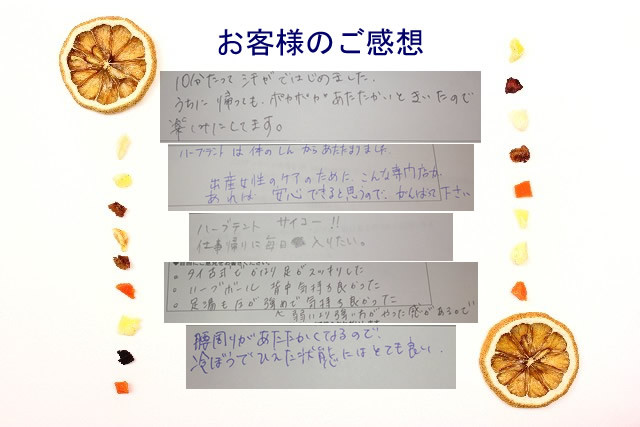 お客様のご感想
10分たって汗がではじめました。
うちに帰っても、ポカポカがあたたかいときいたので
楽しみにしてます。
ハーブテントは体のしんからあたたまりました。
出産女性のケアのために、こんな専門店が
あれば、安心できると思うので、がんばって下さい
ハーブテント サイコー!!
仕事帰りに毎日入りたい。
。タイ古式でかなり足がスッキリした
。ハーブボール 背中気持ち良かった
。足湯も圧が強めで気持ち良かった
※ 弱いより強い方がやった感があるので
腰回りがあたたかくなるので、
冷ぼうでひえた状態にはとても良い。